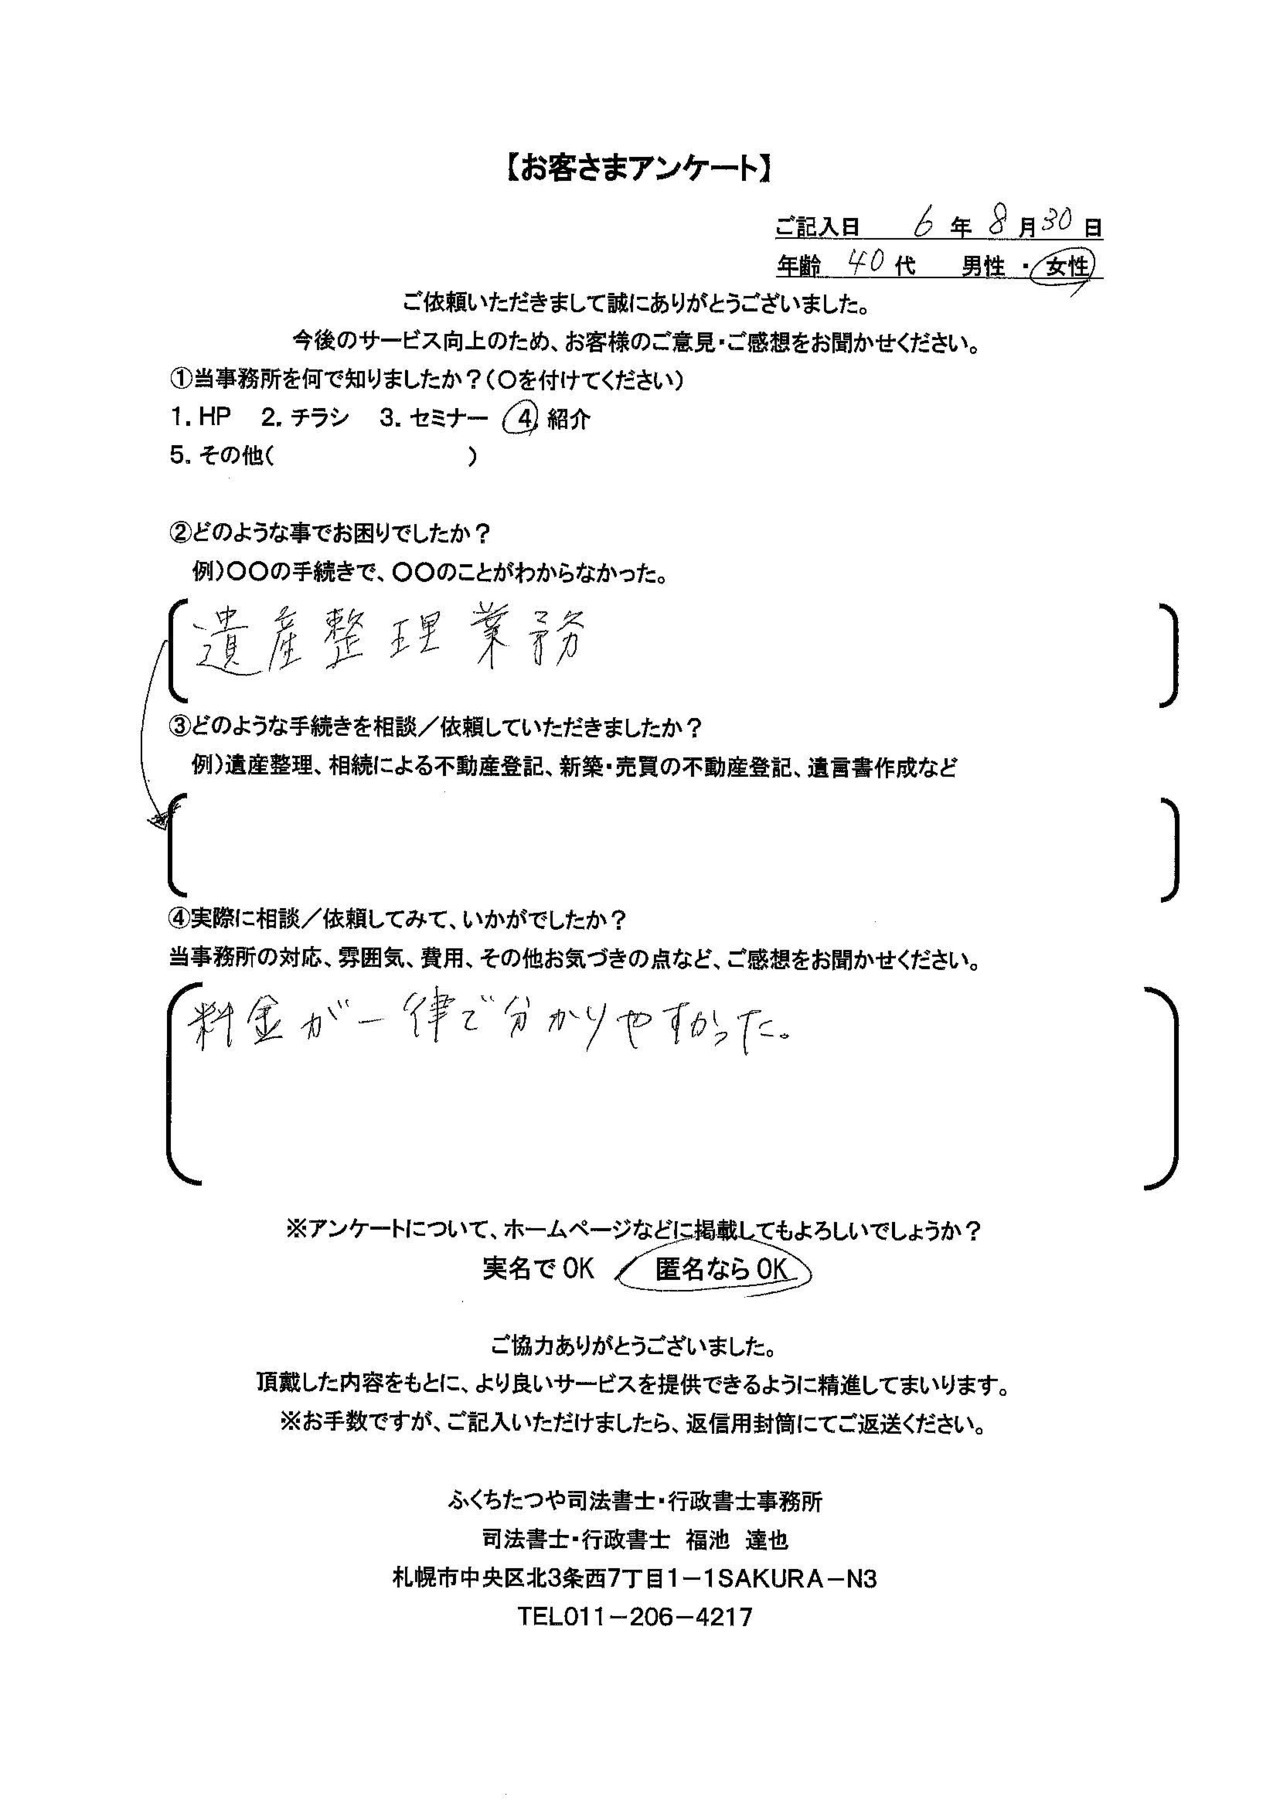 【お客さまアンケート】
ご記入日 6年8月30日
年齢 40代 男性・女性
ご依頼いただきまして誠にありがとうございました。
今後のサービス向上のため、お客様のご意見・ご感想をお聞かせください。
①当事務所を何で知りましたか？（〇を付けてください）
1．HP 2．チラシ 3．セミナー 4．紹介
5．その他（ ）
②どのような事でお困りでしたか？
例）〇〇の手続きで、〇〇のことがわからなかった。
遺産整理業務
③どのような手続きを相談／依頼していただきましたか？
例）遺産整理、相続による不動産登記、新築・売買の不動産登記、遺言書作成など
④実際に相談／依頼してみて、いかがでしたか？
当事務所の対応、雰囲気、費用、その他お気づきの点など、ご感想をお聞かせください。
料金が一律で分かりやすかった。
※アンケートについて、ホームページなどに掲載してもよろしいでしょうか？
実名でOK ／ 匿名ならOK
ご協力ありがとうございました。
頂戴した内容をもとに、より良いサービスを提供できるように精進してまいります。
※お手数ですが、ご記入いただけましたら、返信用封筒にてご返送ください。
ふくちたつや司法書士・行政書士事務所
司法書士・行政書士 福池 達也
札幌市中央区北3条西7丁目1－1SAKURA－N3
TEL011－206－4217